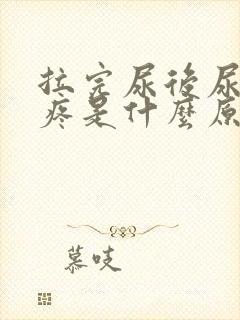 拉完尿後尿
疼是什麼原
慕吱